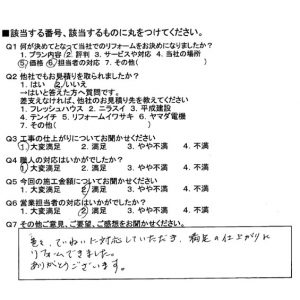 ■該当する番号、該当するものに丸をつけてください。
Q1 何が決めてとなって当社でのリフォームをお決めになりましたか?
1. プラン内容 2. 評判 3. サービスや対応 4. 当社の場所
5. 価格 6. 担当者の対応 7. その他( )
Q2 他社でもお見積りを取られましたか?
1. はい 2. いいえ
→はいと答えた方へ質問です。
差支えなければ、他社のお見積り先を教えてください
1. フレッシュハウス 2. ニラスイ 3. 平成建設
4. テンイチ 5. リフォームイワサキ 6. ヤマダ電機
7. その他( )
Q3 工事の仕上がりについてお聞かせください
1. 大変満足 2. 満足 3. やや不満 4. 不満
Q4 職人の対応はいかがでしたか?
1. 大変満足 2. 満足 3. やや不満 4. 不満
Q5 今回の施工金額についてお聞かせください
1. 大変満足 2. 満足 3. やや不満 4. 不満
Q6 営業担当者の対応はいかがでしたか?
1. 大変満足 2. 満足 3. やや不満 4. 不満
Q7 その他ご意見、ご要望、ご感想をお聞かせください
ていねいに対応していただき、満足の仕上がりに
リフォームできました。
ありがとうございます。